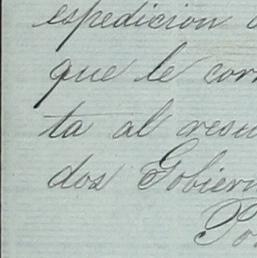 espedicion
que le cor
ta al resu
dos Gobiern
Po